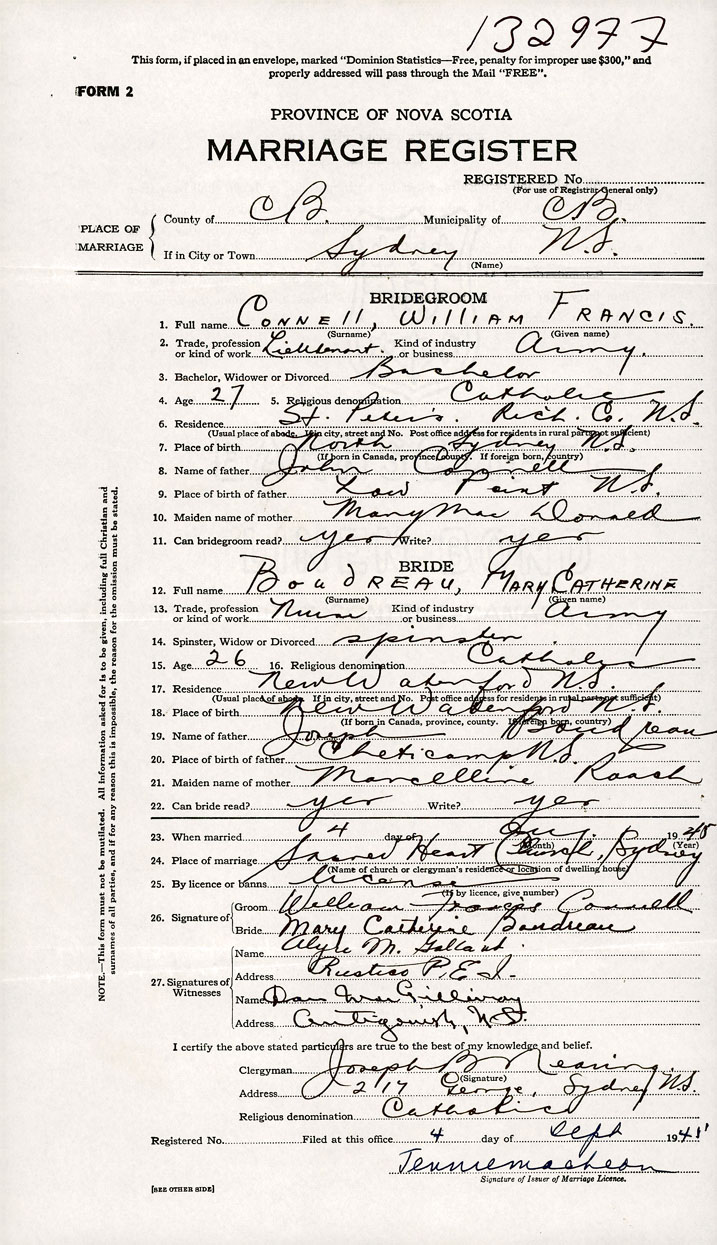 132977
This form, if placed in an envelope, marked "Dominion Statistics—Free, penalty for improper use $300," and
properly addressed will pass through the Mail "FREE".
FORM 2
PROVINCE OF NOVA SCOTIA
MARRIAGE REGISTER
REGISTERED No.
(For use of Registrar General only)
PLACE OF MARRIAGE
County of C B. Municipality of C B.
If in City or Town Sydney N.S.
(Name)
BRIDEGROOM
1. Full name Connell, William Francis.
(Surname) (Given name)
2. Trade, profession or kind of work Lieutenant. Kind of industry or business Army.
3. Bachelor, Widower or Divorced Bachelor
4. Age 27 5. Religious denomination Catholic
6. Residence St. Peter's. Rich. Co. N.S.
(Usual place of abode. If in city, street and No. Post office address for residents in rural parts not sufficient)
7. Place of birth North Sydney N.S.
(If born in Canada, province, county. If foreign born, country)
8. Name of father John Connell
9. Place of birth of father Low Point N.S.
10. Maiden name of mother Mary Mac Donald
11. Can bridegroom read? yes Write? yes
BRIDE
12. Full name Boudreau, Mary Catherine
(Surname) (Given name)
13. Trade, profession or kind of work Nurse Kind of industry or business Army
14. Spinster, Widow or Divorced spinster
15. Age 26 16. Religious denomination Catholic
17. Residence New Waterford N.S.
(Usual place of abode. If in city, street and No. Post office address for residents in rural parts not sufficient)
18. Place of birth New Waterford N.S.
(If born in Canada, province, county. If foreign born, country)
19. Name of father Joseph Boudreau
20. Place of birth of father Cheticamp N.S.
21. Maiden name of mother Marcelline Roach
22. Can bride read? yes Write? yes
23. When married 4 day of 19
(Month) (Year)
24. Place of marriage Sacred Heart Church, Sydney
(Name of church or clergyman's residence or location of dwelling house)
25. By licence or banns license
(If by licence, give number)
26. Signature of
Groom William Francis Connell
Bride Mary Catherine Boudreau
27. Signatures of Witnesses
Name M. Gallant
Address Rustico P.E.I.
Name Dan MacGillivray
Address Antigonish, N.S.
I certify the above stated particulars are true to the best of my knowledge and belief.
Clergyman Joseph B Nearing.
(Signature)
Address 217 George, Sydney N.S.
Religious denomination Catholic
Registered No. Filed at this office 4 day of Sept 19
Jennie
Signature of Issuer of Marriage Licence.
[SEE OTHER SIDE]
NOTE.—This form must not be mutilated. All information asked for is to be given, including full Christian and
surnames of all parties, and if for any reason this is impossible, the reason for the omission must be stated.